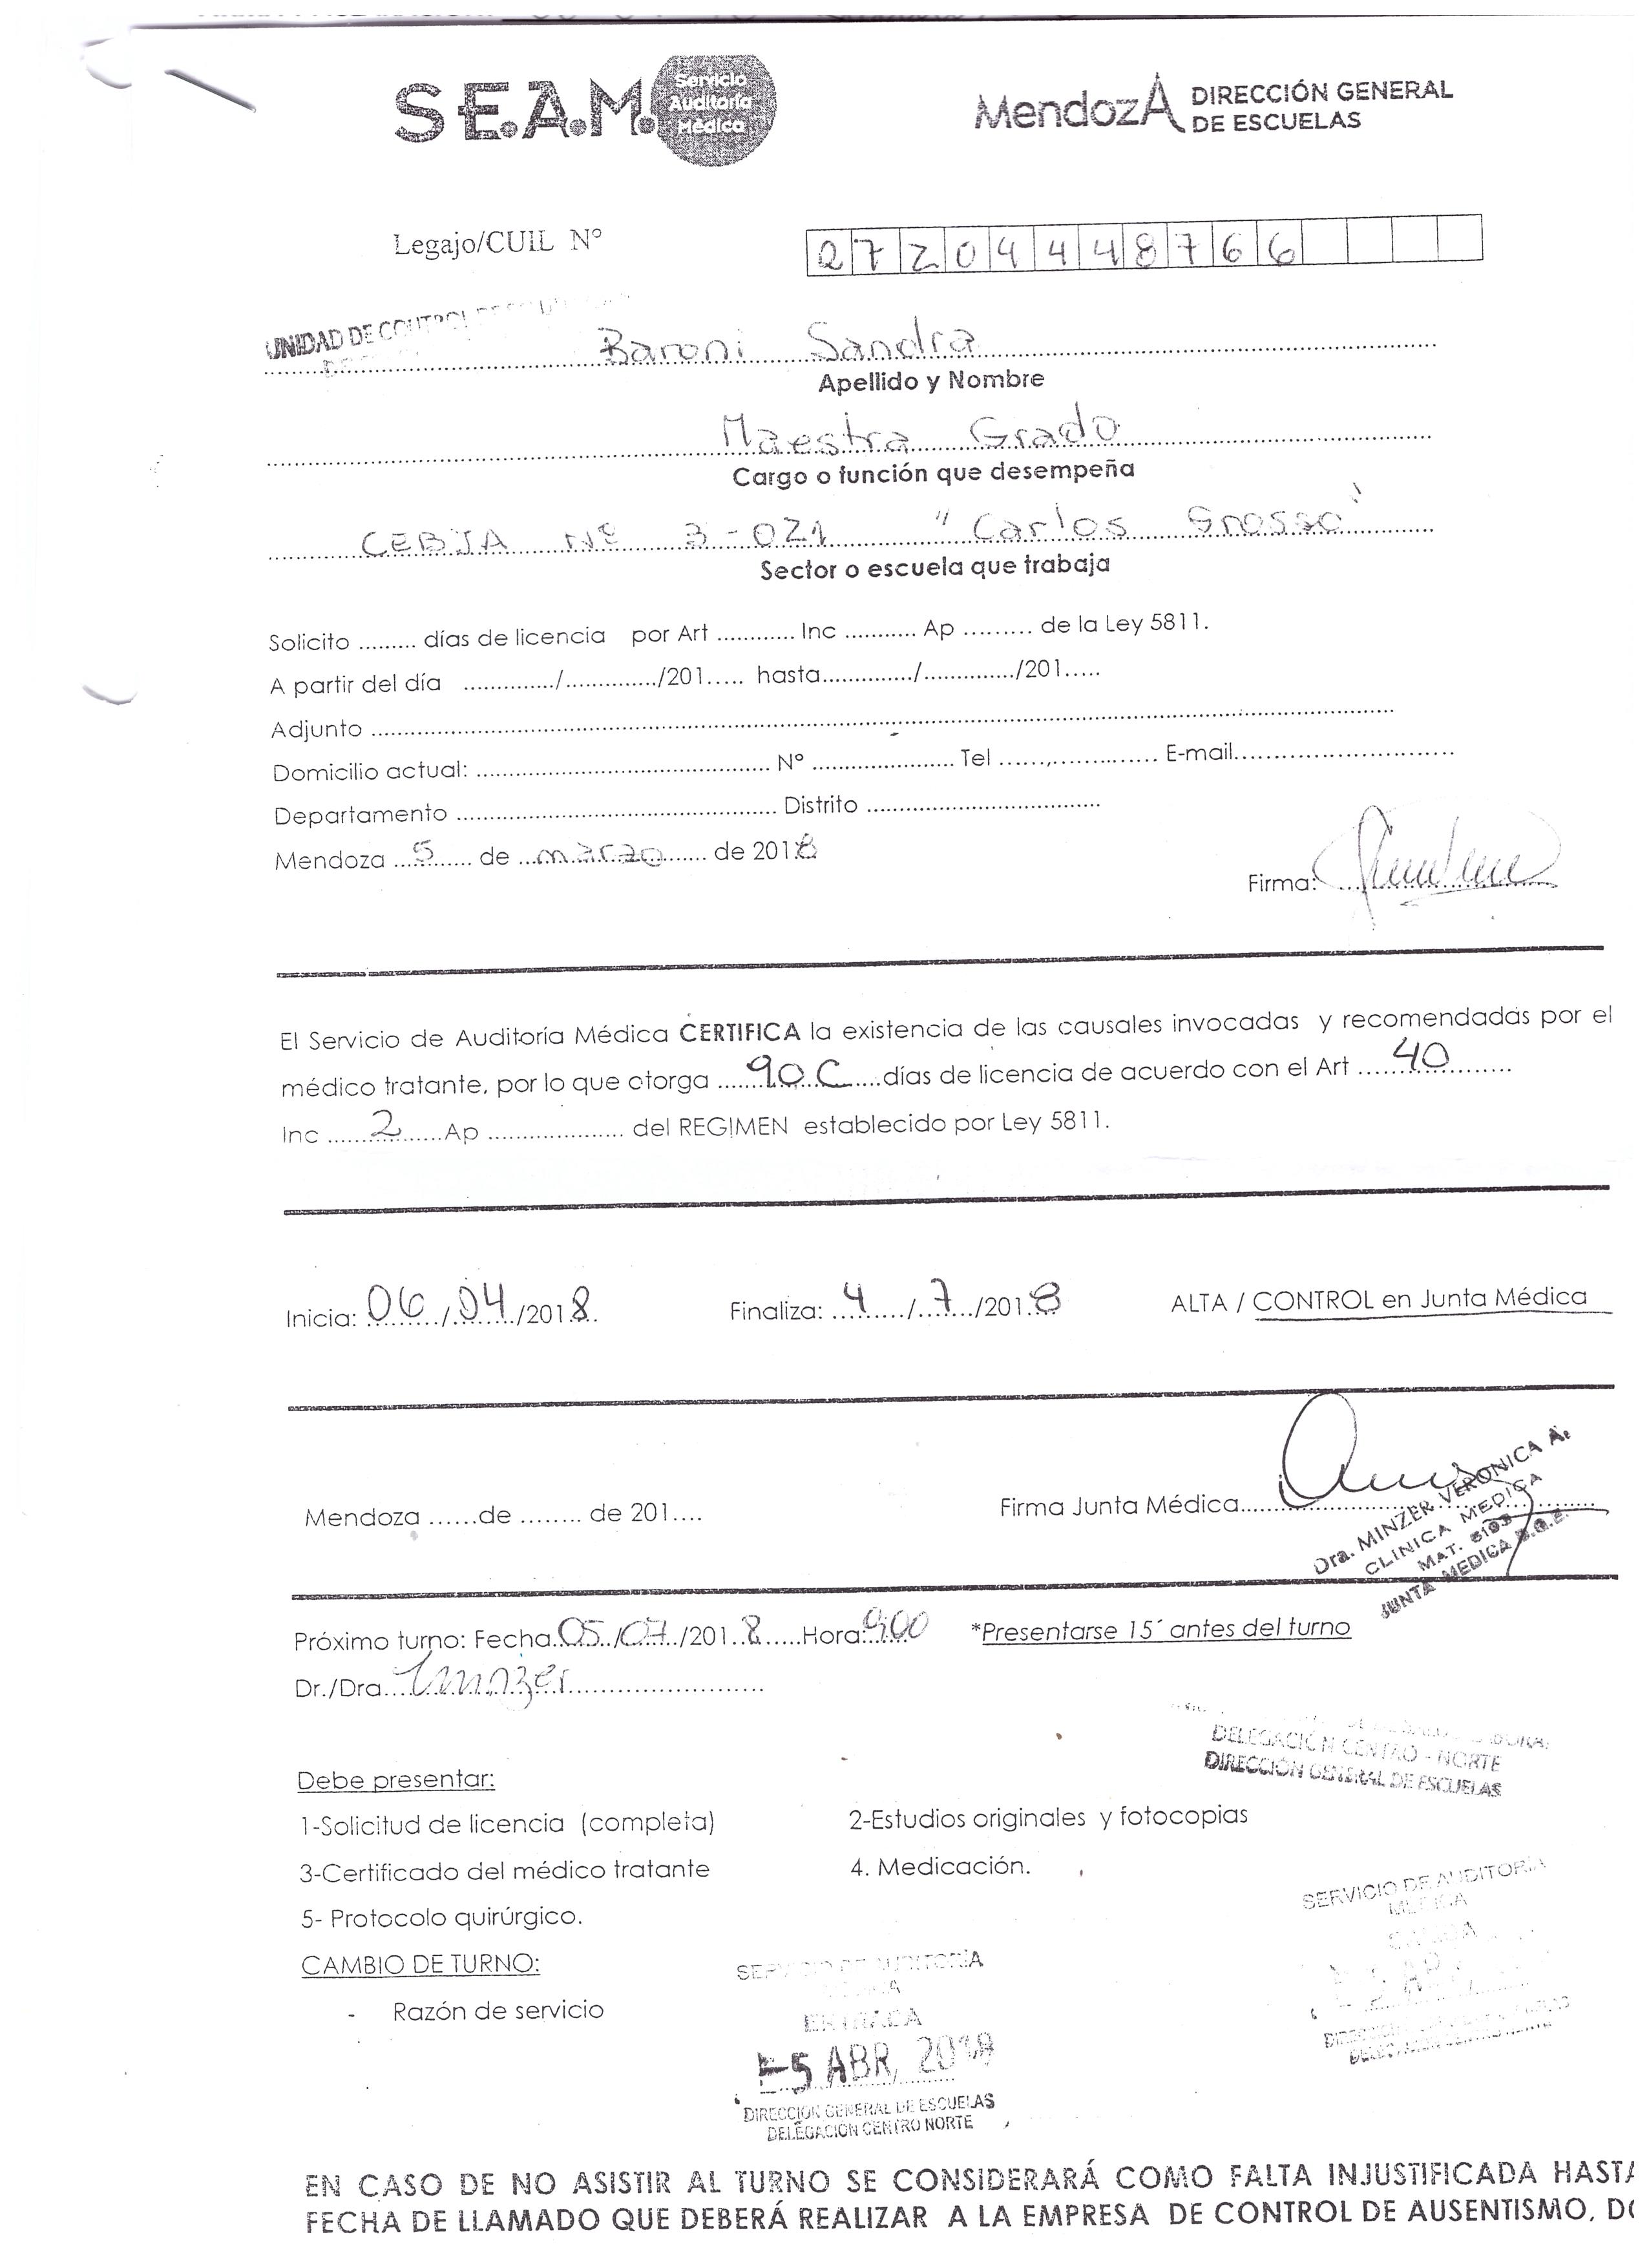 S.E.A.M. Servicio Auditoría Médica
MendozA DIRECCIÓN GENERAL DE ESCUELAS
Legajo/CUIL Nº 27204448766
UNIDAD DE CONTROL DE
Baroni Sandra
Apellido y Nombre
Maestra Grado
Cargo o función que desempeña
CEBJA Nº 3-021 "Carlos Grosso"
Sector o escuela que trabaja
Solicito ......... días de licencia por Art ............ Inc ........... Ap ......... de la Ley 5811.
A partir del día ............../............../201..... hasta............../............../201.....
Adjunto ..........
Domicilio actual: .......... Nº .......... Tel .......... E-mail..........
Departamento .......... Distrito ..........
Mendoza 5 de marzo de 2018
Firma:
El Servicio de Auditoría Médica CERTIFICA la existencia de las causales invocadas y recomendadas por el
médico tratante, por lo que otorga 90 C días de licencia de acuerdo con el Art 40
Inc 2 Ap .......... del REGIMEN establecido por Ley 5811.
Inicia: 06/04/2018 Finaliza: 4/7/2018 ALTA / CONTROL en Junta Médica
Mendoza ......de ........ de 201....
Firma Junta Médica
Dra. MINZER VERONICA A.
CLINICA MEDICA
MAT. 8193
JUNTA MEDICA D.G.E.
Próximo turno: Fecha 05/07/2018 Hora: 9:00 *Presentarse 15´ antes del turno
Dr./Dra Minzer
DELEGACIÓN CENTRO - NORTE
DIRECCIÓN GENERAL DE ESCUELAS
Debe presentar:
1-Solicitud de licencia (completa) 2-Estudios originales y fotocopias
3-Certificado del médico tratante 4. Medicación.
5- Protocolo quirúrgico.
SERVICIO DE AUDITORÍA
MEDICA
CAMBIO DE TURNO:
- Razón de servicio
SERVICIO DE AUDITORÍA
ENTRADA
-5 ABR. 2018
DIRECCION GENERAL DE ESCUELAS
DELEGACION CENTRO NORTE
EN CASO DE NO ASISTIR AL TURNO SE CONSIDERARÁ COMO FALTA INJUSTIFICADA HASTA
FECHA DE LLAMADO QUE DEBERÁ REALIZAR A LA EMPRESA DE CONTROL DE AUSENTISMO, DO